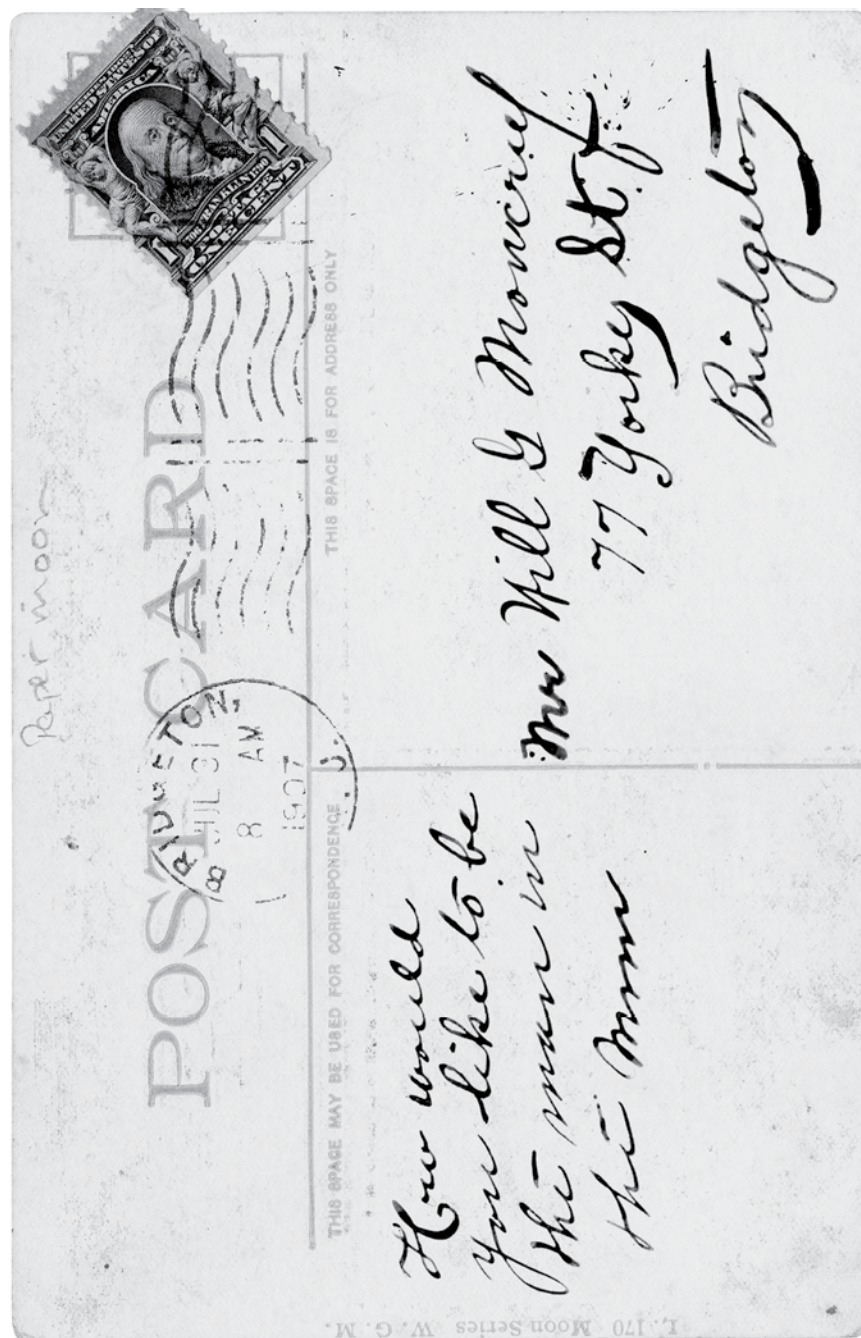 Paper moon
POST CARD
BRIDGETON, N. J.
JUL 31
8 AM
1907
UNITED STATES OF
AMERICA
1
1
ONE CENT
THIS SPACE MAY BE USED FOR CORRESPONDENCE
THIS SPACE IS FOR ADDRESS ONLY
How would
you like to be
the man in
the moon
Mr Will G Moncrief
77 Yorke St
Bridgeton
L. 170 Moon Series W. G. M.